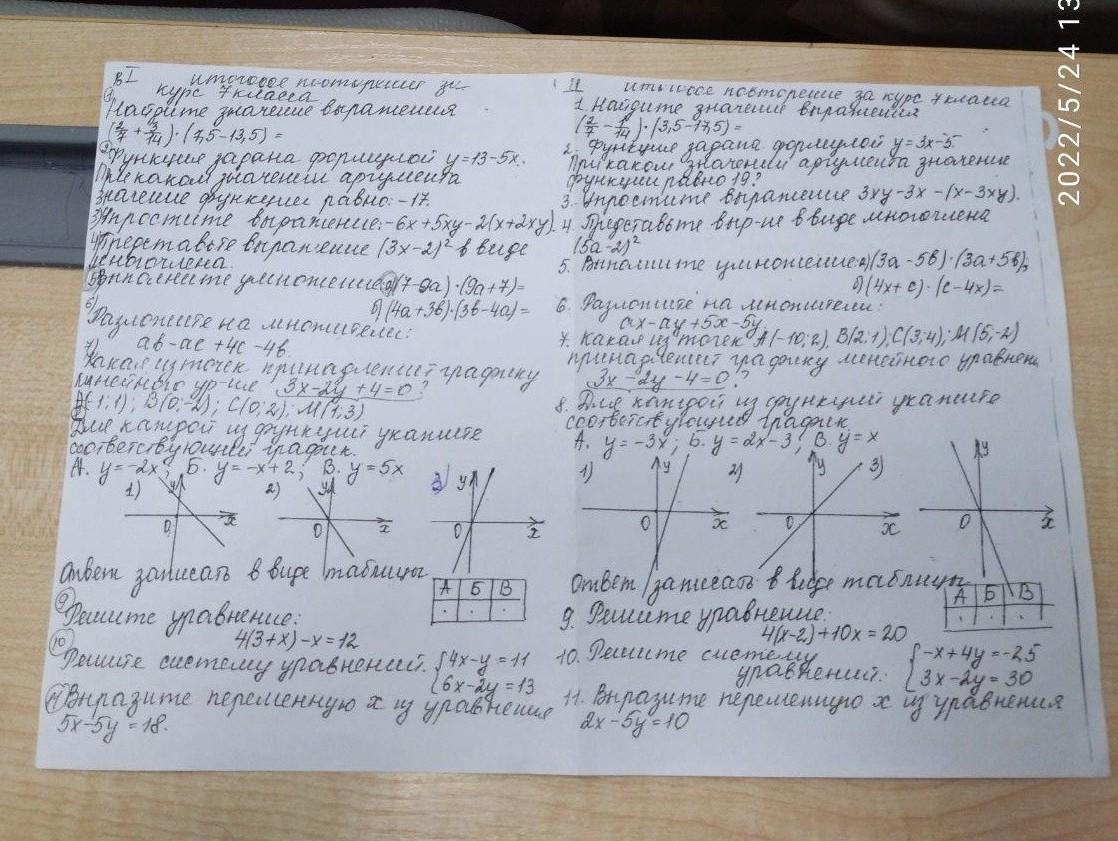 вI итоговое повторение за
курс 7 класса
1) Найдите значение выражения
(2/7 + 3/14) · (7,5-13,5) =
2. Функция задана формулой y=13-5x.
При каком значении аргумента
значение функции равно: -17.
3) Упростите выражение: -6x+5xy-2(x+2xy).
4) Представьте выражение (3x-2)² в виде
многочлена.
5) Выполните умножение а) (7-9a)·(9a+7)=
б) (4a+3b)·(3b-4a)=
6)
Разложите на множители:
ab-ac+4c-4b.
7)
Какая из точек принадлежит графику
линейного ур-ния 3x-2y+4=0?
A(-1;1); B(0;-2); C(0;2); M(1;3)
8)
Для каждой из функций укажите
соответствующий график.
А. y=-2x; Б. y=-x+2; В. y=5x
1) y 0 x 2) y 0 x 3) y 0 x
Ответ записать в виде таблицы
А Б В
9)
Решите уравнение:
4(3+x)-x=12
10)
Решите систему уравнений. { 4x-y=11
6x-2y=13
11) Выразите переменную x из уравнения
5x-5y=18.
II итоговое повторение за курс 7 класса
1. Найдите значение выражения
(2/7 - 1/14) · (3,5-17,5)=
2. Функция задана формулой y=3x-5.
При каком значении аргумента значение
функции равно 19?
3. Упростите выражение 3xy-3x-(x-3xy).
4. Представьте выр-ие в виде многочлена
(5a-2)²
5. Выполните умножение: а) (3a-5b)·(3a+5b);
б) (4x+c)·(c-4x)=
6. Разложите на множители:
ax-ay+5x-5y.
7. Какая из точек A(-10;2), B(2;1); C(3;4); M(5;-2)
принадлежит графику линейного уравнения
3x-2y-4=0?
8. Для каждой из функций укажите
соответствующий график.
А. y=-3x; Б. y=2x-3; В. y=x
1) y 0 x 2) y 0 x 3) y 0 x
Ответ записать в виде таблицы
А Б В
9. Решите уравнение:
4(x-2)+10x=20
10. Решите систему
уравнений: { -x+4y=-25
3x-2y=30
11. Выразите переменную x из уравнения
2x-5y=10
2022/5/24 13